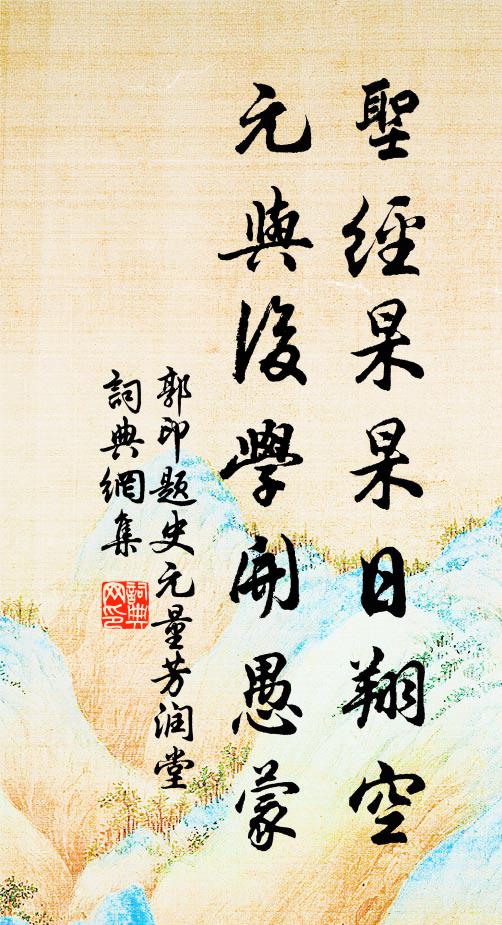 聖經杲杲日翔空
元與後學開愚蒙
郭印題史元量芳润堂
詞典網集
詞典